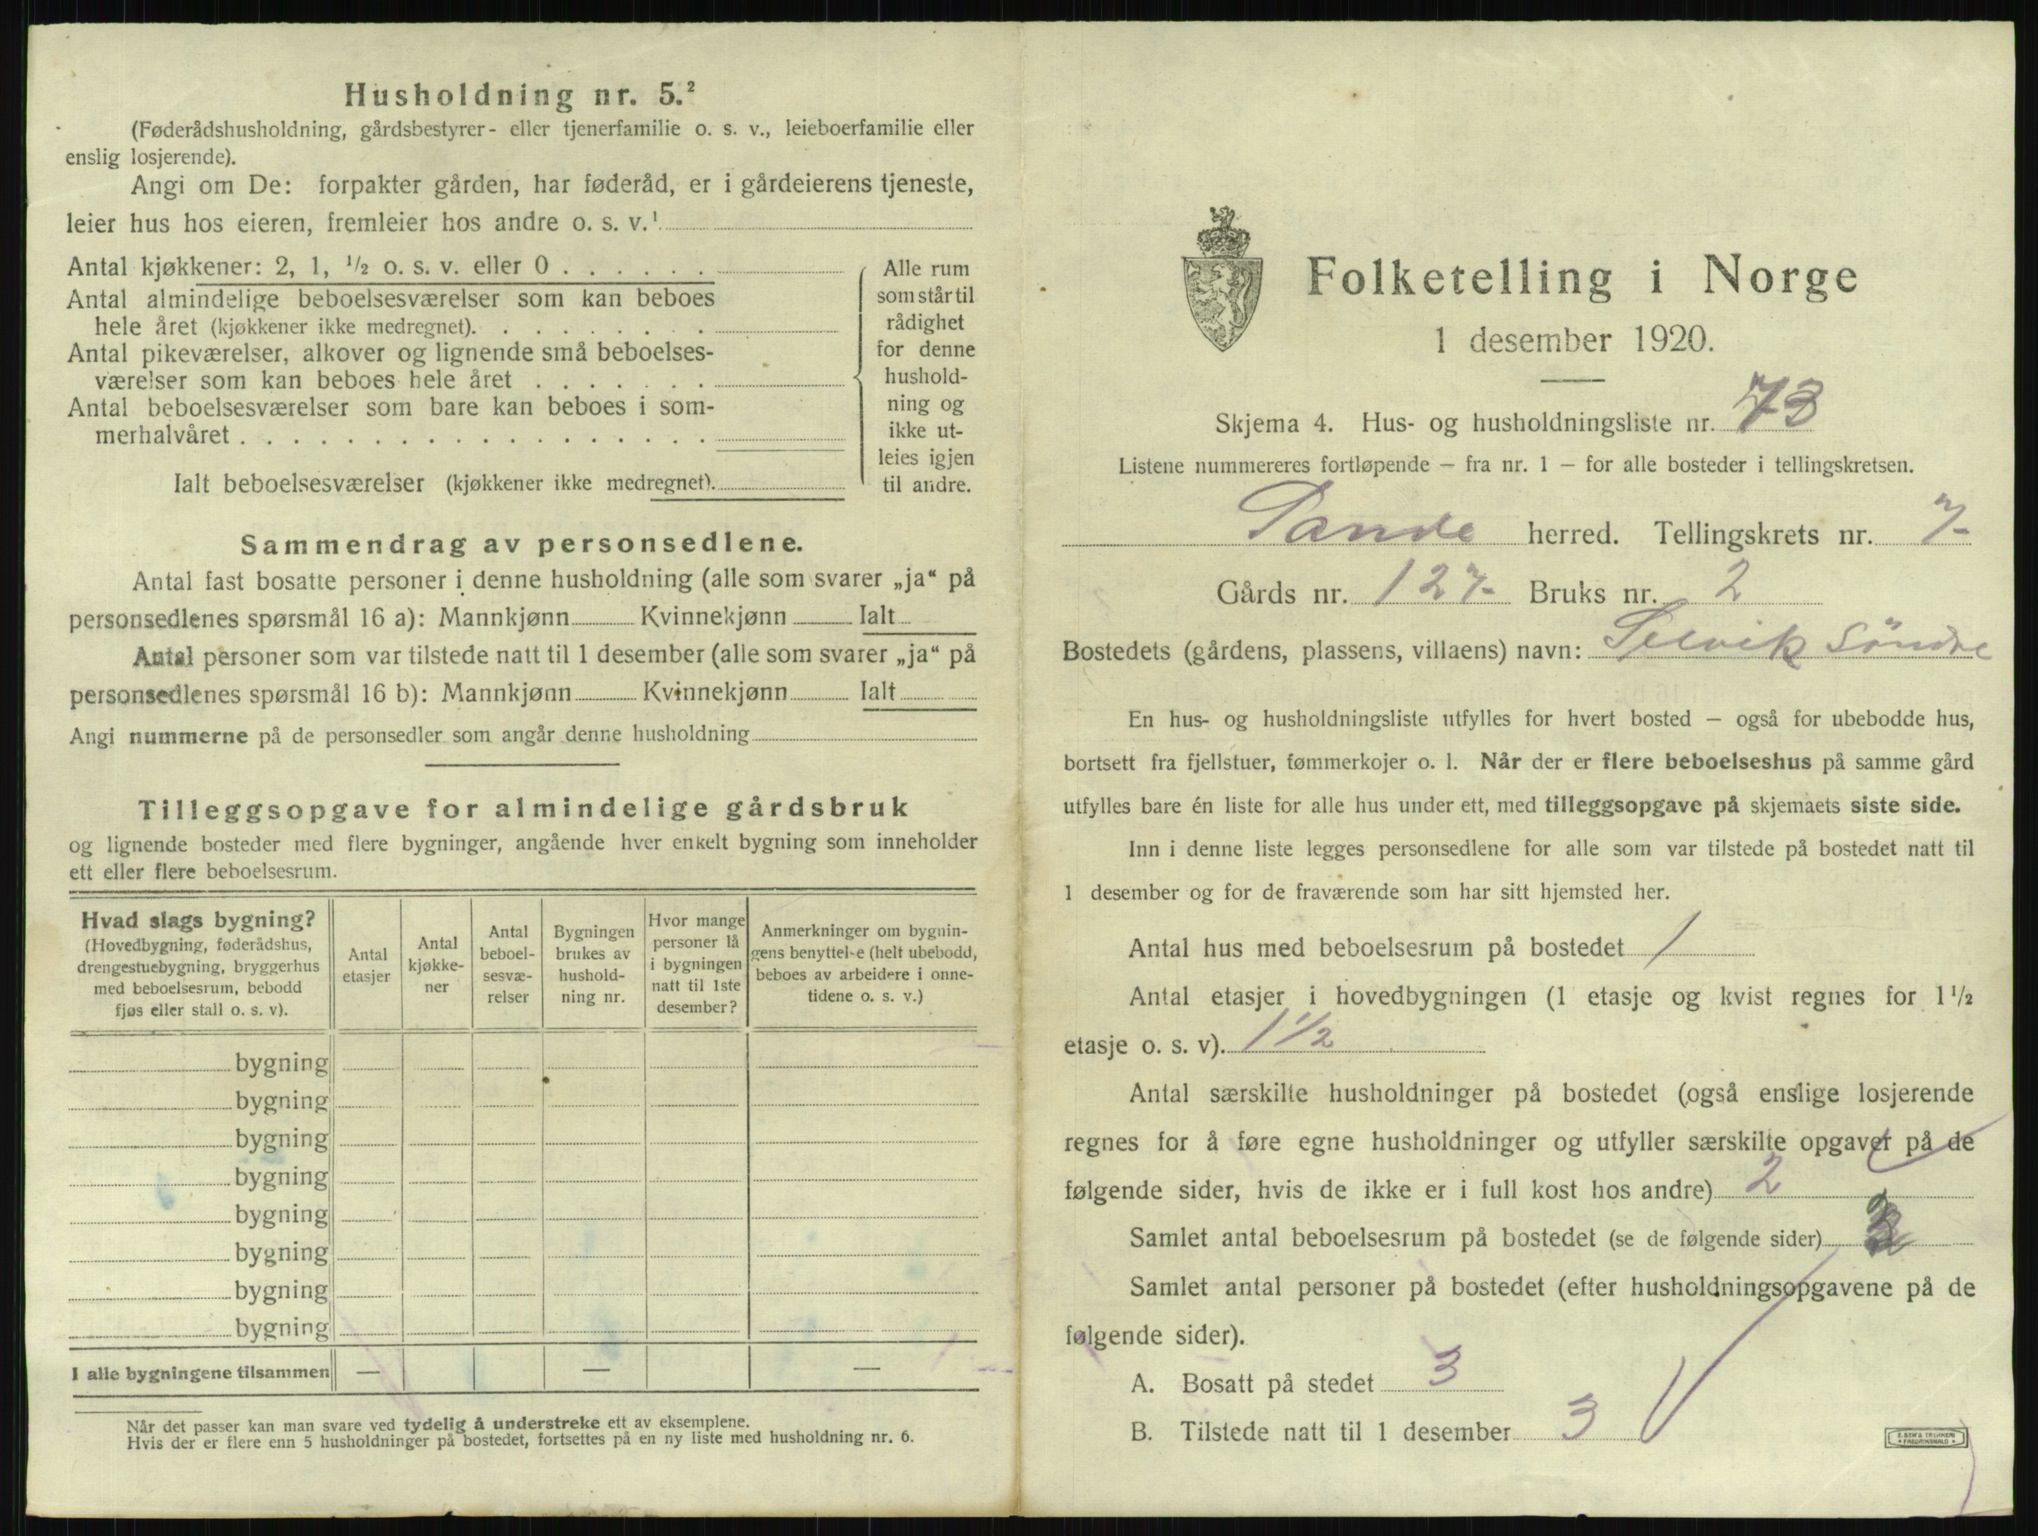 Husholdning nr. 5.²
(Føderådshusholdning, gårdsbestyrer- eller tjenerfamilie o. s. v., leieboerfamilie eller
enslig losjerende).
Angi om De: forpakter gården, har føderåd, er i gårdeierens tjeneste,
leier hus hos eieren, fremleier hos andre o. s. v.¹
Antal kjøkkener: 2, 1, ½ o. s. v. eller 0 . . . . . .
Antal almindelige beboelsesværelser som kan beboes
hele året (kjøkkener ikke medregnet). . . . . . . . .
Antal pikeværelser, alkover og lignende små beboelses-
værelser som kan beboes hele året . . . . . . .
Antal beboelsesværelser som bare kan beboes i som-
merhalvåret . . . . . . . . . . . . . . . . . .
Ialt beboelsesværelser (kjøkkener ikke medregnet).
Alle rum
som står til
rådighet
for denne
hushold-
ning og
ikke ut-
leies igjen
til andre.
Sammendrag av personsedlene.
Antal fast bosatte personer i denne husholdning (alle som svarer „ja“ på
personsedlenes spørsmål 16 a): Mannkjønn Kvinnekjønn Ialt
Antal personer som var tilstede natt til 1 desember (alle som svarer „ja“ på
personsedlenes spørsmål 16 b): Mannkjønn Kvinnekjønn Ialt
Angi nummerne på de personsedler som angår denne husholdning
Tilleggsopgave for almindelige gårdsbruk
og lignende bosteder med flere bygninger, angående hver enkelt bygning som inneholder
ett eller flere beboelsesrum.
Hvad slags bygning?
(Hovedbygning, føderådshus,
drengestuebygning, bryggerhus
med beboelsesrum, bebodd
fjøs eller stall o. s. v).
Antal
etasjer
Antal
kjøkke-
ner
Antal
beboel-
sesvæ-
relser
Bygningen
brukes av
hushold-
ning nr.
Hvor mange
personer lå
i bygningen
natt til 1ste
desember?
Anmerkninger om bygnin-
gens benyttelse (helt ubebodd,
beboes av arbeidere i onne-
tidene o. s. v.)
bygning
bygning
bygning
bygning
bygning
bygning
bygning
bygning
I alle bygningene tilsammen — — —
Når det passer kan man svare ved tydelig å understreke ett av eksemplene.
Hvis der er flere enn 5 husholdninger på bostedet, fortsettes på en ny liste med husholdning nr. 6.
Folketelling i Norge
1 desember 1920.
Skjema 4. Hus- og husholdningsliste nr. 73
Listene nummereres fortløpende — fra nr. 1 — for alle bosteder i tellingskretsen.
Sande herred. Tellingskrets nr. 7-
Gårds nr. 127- Bruks nr. 2
Bostedets (gårdens, plassens, villaens) navn: Selvik Söndre
En hus- og husholdningsliste utfylles for hvert bosted — også for ubebodde hus,
bortsett fra fjellstuer, tømmerkojer o. l. Når der er flere beboelseshus på samme gård
utfylles bare én liste for alle hus under ett, med tilleggsopgave på skjemaets siste side.
Inn i denne liste legges personsedlene for alle som var tilstede på bostedet natt til
1 desember og for de fraværende som har sitt hjemsted her.
Antal hus med beboelsesrum på bostedet 1
Antal etasjer i hovedbygningen (1 etasje og kvist regnes for 1½
etasje o. s. v). 1½
Antal særskilte husholdninger på bostedet (også enslige losjerende
regnes for å føre egne husholdninger og utfyller særskilte opgaver på de
følgende sider, hvis de ikke er i full kost hos andre) 2
Samlet antal beboelsesrum på bostedet (se de følgende sider)
Samlet antal personer på bostedet (efter husholdningsopgavene på de
følgende sider).
A. Bosatt på stedet 3
B. Tilstede natt til 1 desember 3